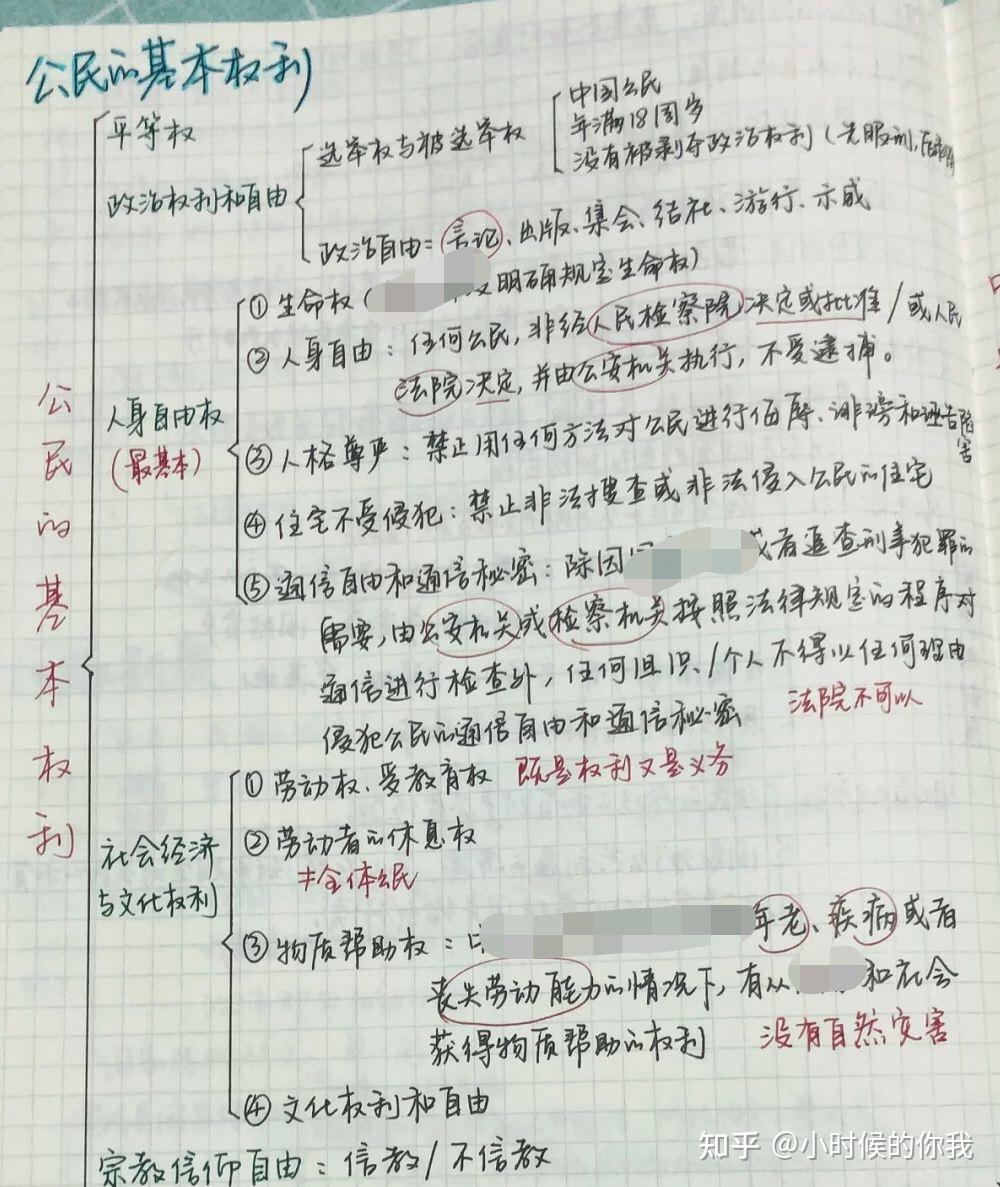 公民的基本权利
公民的基本权利
平等权
政治权利和自由
选举权与被选举权
中国公民
年满18周岁
没有被剥夺政治权利(先服刑,后
政治自由:言论、出版、集会、结社、游行、示威
人身自由权
(最基本)
①生命权( 明确规定生命权)
②人身自由:任何公民,非经人民检察院决定或批准/或人民
法院决定,并由公安机关执行,不受逮捕。
③人格尊严:禁止用任何方法对公民进行侮辱、诽谤和诬告陷
害
④住宅不受侵犯:禁止非法搜查或非法侵入公民的住宅
⑤通信自由和通信秘密:除因 或者追查刑事犯罪的
需要,由公安机关或检察机关按照法律规定的程序对
通信进行检查外,任何组织/个人不得以任何理由
侵犯公民的通信自由和通信秘密 法院不可以
社会经济
与文化权利
①劳动权、受教育权 既是权利又是义务
②劳动者的休息权
≠全体公民
③物质帮助权: 年老、疾病或者
丧失劳动能力的情况下,有从 和社会
获得物质帮助的权利 没有自然灾害
④文化权利和自由
宗教信仰自由:信教/不信教
知乎 @小时候的你我